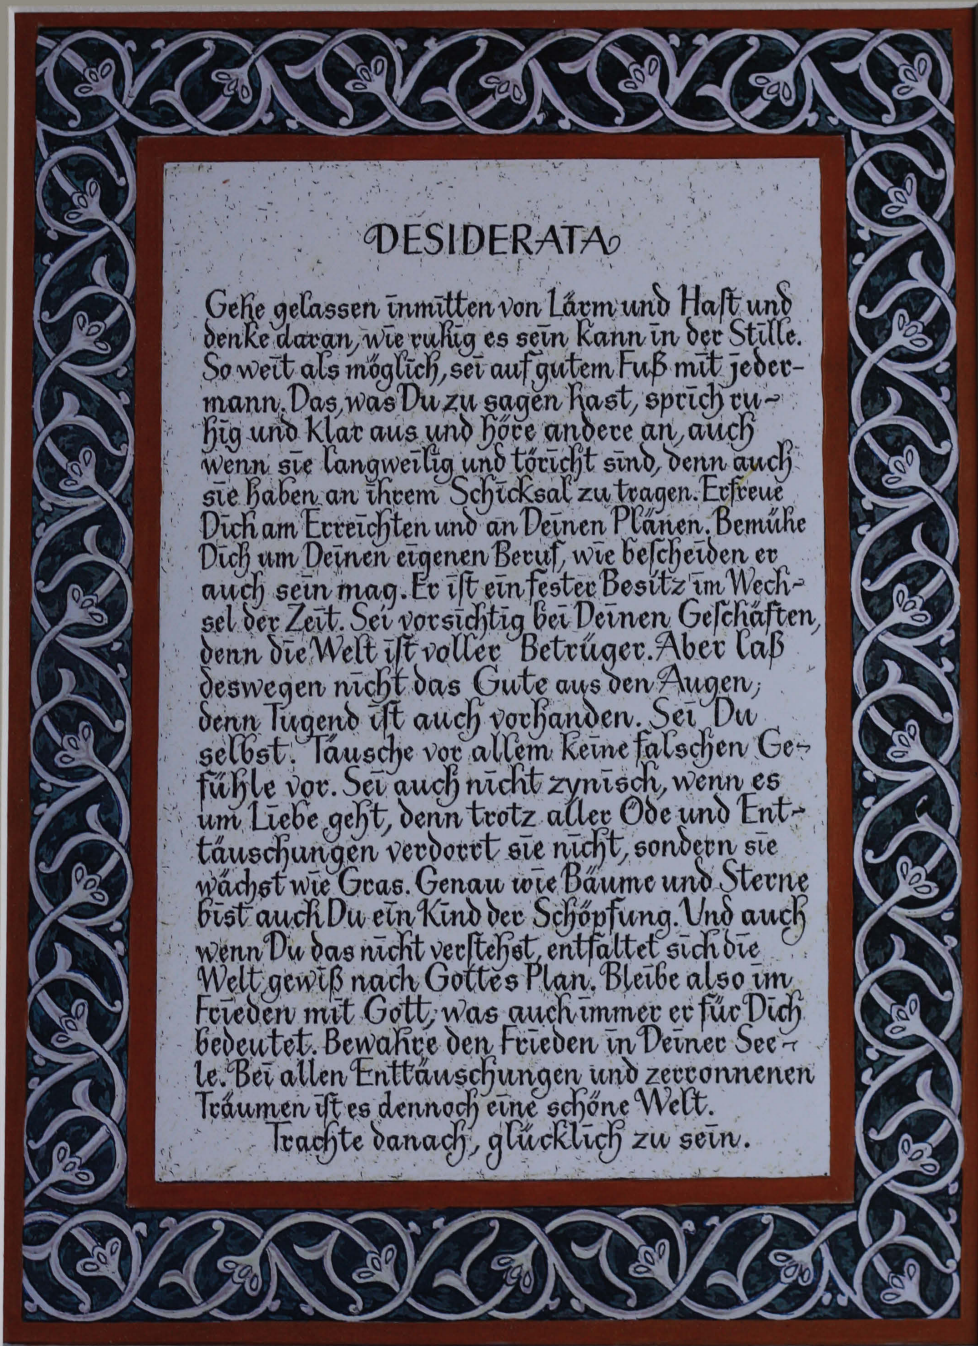 DESIDERATA
Gehe gelassen inmitten von Lärm und Hast und
denke daran, wie ruhig es sein kann in der Stille.
So weit als möglich, sei auf gutem Fuß mit jeder-
mann. Das, was Du zu sagen hast, sprich ru-
hig und klar aus und höre andere an, auch
wenn sie langweilig und töricht sind, denn auch
sie haben an ihrem Schicksal zu tragen. Erfreue
Dich am Erreichten und an Deinen Plänen. Bemühe
Dich um Deinen eigenen Beruf, wie bescheiden er
auch sein mag. Er ist ein fester Besitz im Wech-
sel der Zeit. Sei vorsichtig bei Deinen Geschäften,
denn die Welt ist voller Betrüger. Aber laß
deswegen nicht das Gute aus den Augen,
denn Tugend ist auch vorhanden. Sei Du
selbst. Täusche vor allem keine falschen Ge-
fühle vor. Sei auch nicht zynisch, wenn es
um Liebe geht, denn trotz aller Öde und Ent-
täuschungen verdorrt sie nicht, sondern sie
wächst wie Gras. Genau wie Bäume und Sterne
bist auch Du ein Kind der Schöpfung. Und auch
wenn Du das nicht verstehst, entfaltet sich die
Welt gewiß nach Gottes Plan. Bleibe also im
Frieden mit Gott, was auch immer er für Dich
bedeutet. Bewahre den Frieden in Deiner See-
le. Bei allen Enttäuschungen und zerronnenen
Träumen ist es dennoch eine schöne Welt.
Trachte danach, glücklich zu sein.